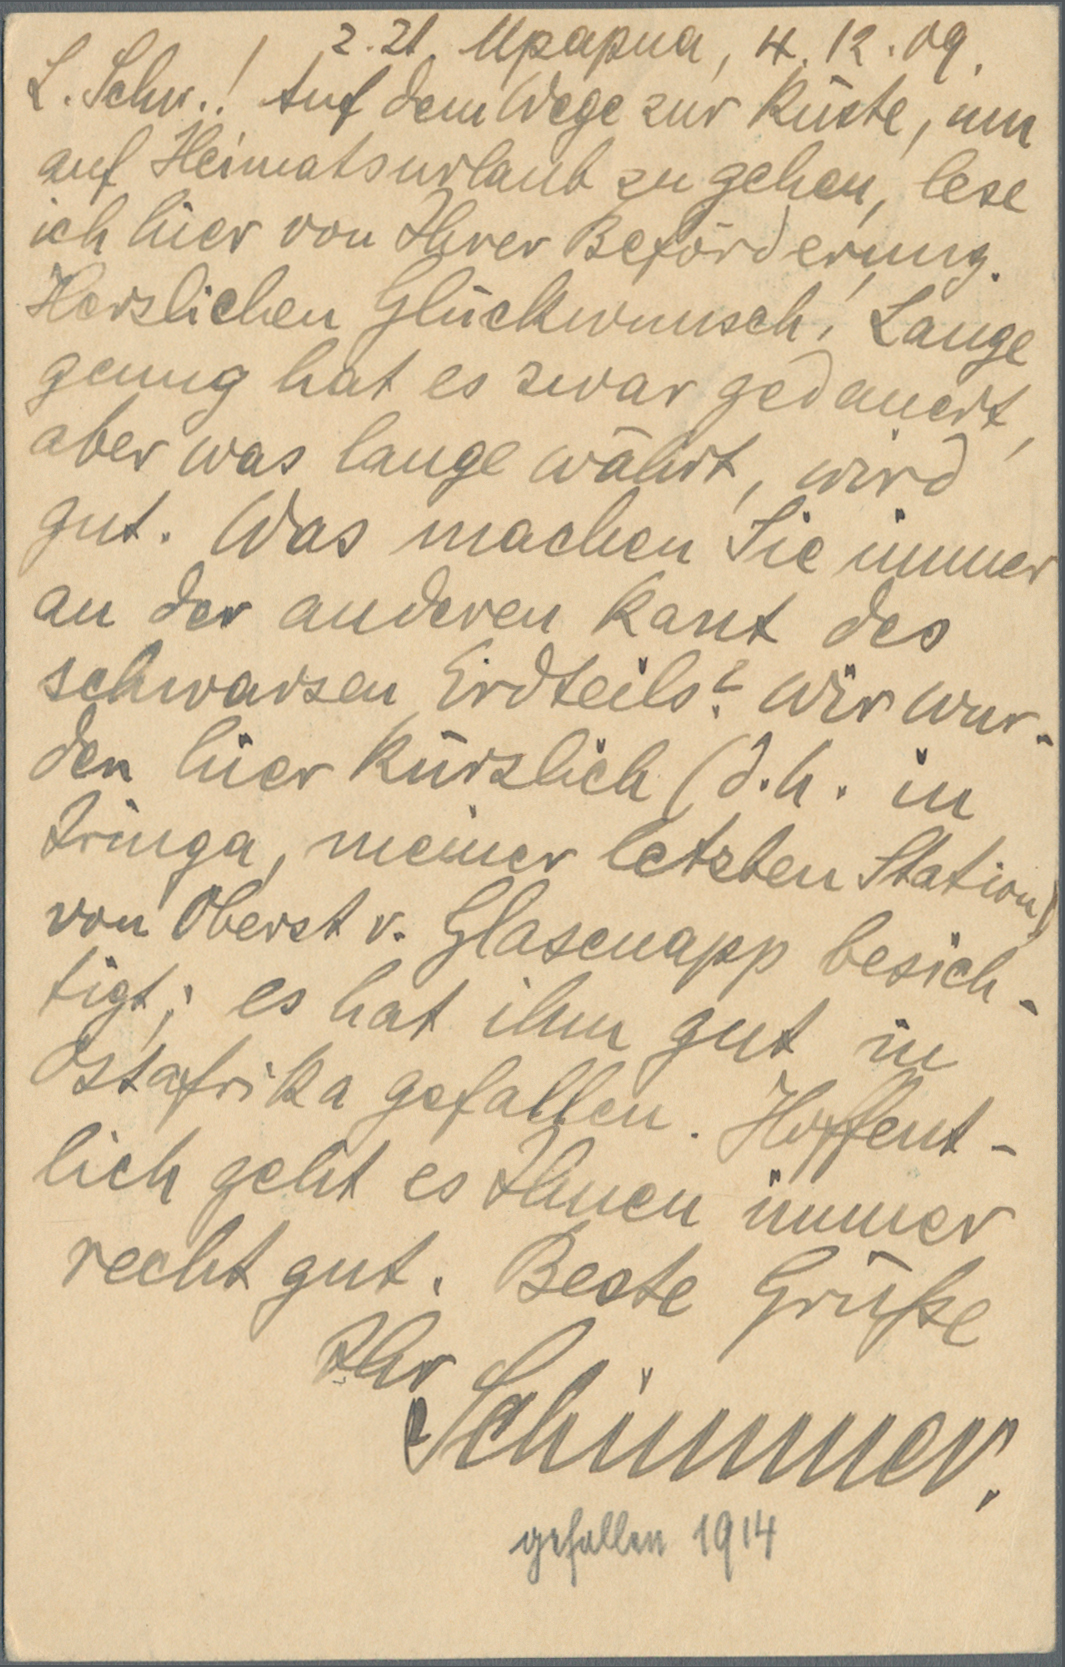 z. Zt. Mpapua, 4.12.09.
L. Schw.! Auf dem Wege zur Küste, um
auf Heimatsurlaub zu gehen, lese
ich hier von Ihrer Beförderung.
Herzlichen Glückwunsch! Lange
genug hat es zwar gedauert,
aber was lange währt, wird
gut. Was machen Sie immer
an der anderen Kant des
schwarzen Erdteils? Wir wur-
den hier kürzlich (d.h. in
Iringa, meiner letzten Station)
von Oberst v. Glasenapp besich-
tigt; es hat ihm gut in
Ostafrika gefallen. Hoffent-
lich geht es Ihnen immer
recht gut. Beste Grüße
Ihr
Schimmer.
gefallen 1914